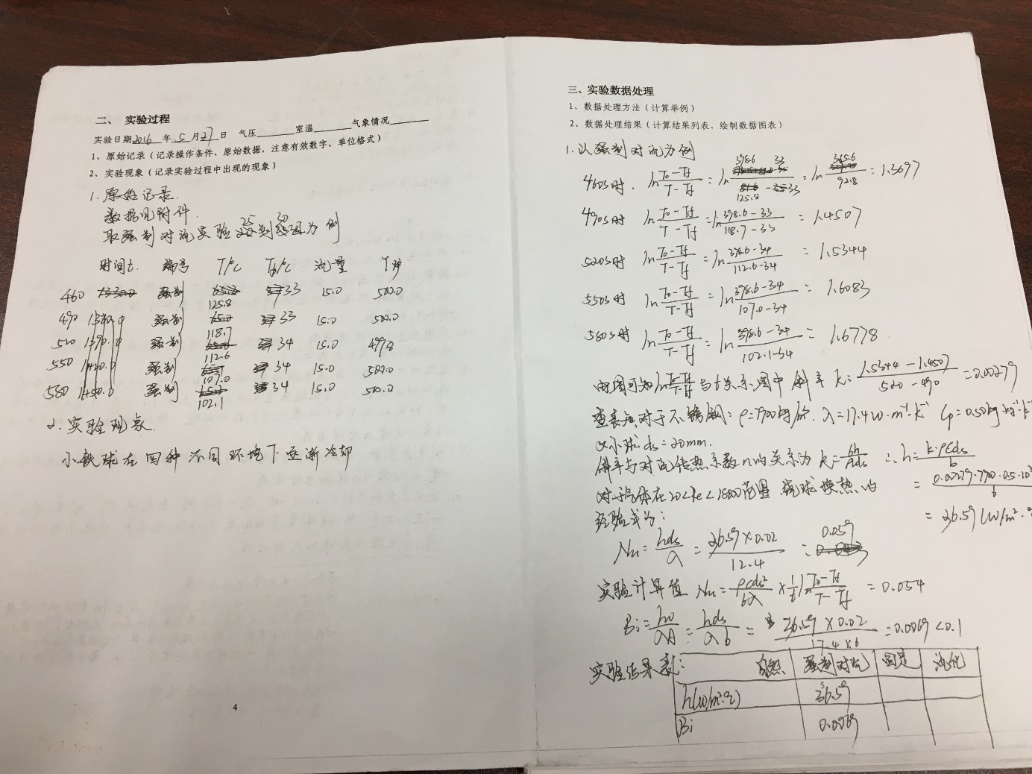 二、 实验过程
实验日期2016 年 5 月27 日 气压 室温 气象情况
1、原始记录(记录操作条件、原始数据,注意有效数字、单位格式)
2、实验现象(记录实验过程中出现的现象)
1.原始记录
数据见附件.
取强制对流实验25到30组为例
时间t. 编号 T/℃ Tf/℃ 流量
460 强制 125.8 33 15.0 502.0
490 强制 118.7 33 15.0 502.0
520 强制 112.6 34 15.0
550 强制 107.0 34 15.0 502.0
580 强制 102.1 34 15.0
2.实验现象
小铁球在四种不同环境下逐渐冷却
4
三、实验数据处理
1、数据处理方法(计算举例)
2、数据处理结果(计算结果列表、绘制数据图表)
1.以强制对流为例
460s时. ln T0-Tf / T-Tf = ln 398.6 33 / 125.8 - 33 = ln 365.6 / 92.8 = 1.3697
490s时 ln T0-Tf / T-Tf = ln 398.6-33 / 118.7-33 = 1.4507
520s时 ln T0-Tf / T-Tf = ln 398.6-34 / 112.6-34 = 1.5344
550s时 ln T0-Tf / T-Tf = ln 398.6-34 / 107.0-34 = 1.6083
580s时 ln T0-Tf / T-Tf = ln 398.6-34 / 102.1-34 = 1.6778
由图可知 ln T0-Tf / T-Tf 与t关系图中斜率 K= 1.5344-1.4507 / 520-490 = 0.00279
查表得对于不锈钢: ρ=7900kg/m³. λ=17.4w·m⁻¹·k⁻¹
小球 ds=20mm.
斜率与对流传热系数h的关系为 K= 6h / ρcds ∴h= k·ρcds / 6
对于气体在20<Re<180000范围, 绕球换热的 = 0.00279·7900·0.5·10³ / 6
经验式为: = 36.59 (W/m²·℃
Nu= hds / λ = 36.59×0.02 / 17.4 = 0.059
实验计算值 Nu= ρcds² / 6λ × 1/t ln T0-Tf / T-Tf = 0.054
Bi= hv / λA = hds / λ6 = 36.59×0.02 / 17.4×6 = 0.0069<0.1
实验结果表: 自然 强制对流 固定 流化
h(w/m²·℃) 36.59
Bi 0.0069